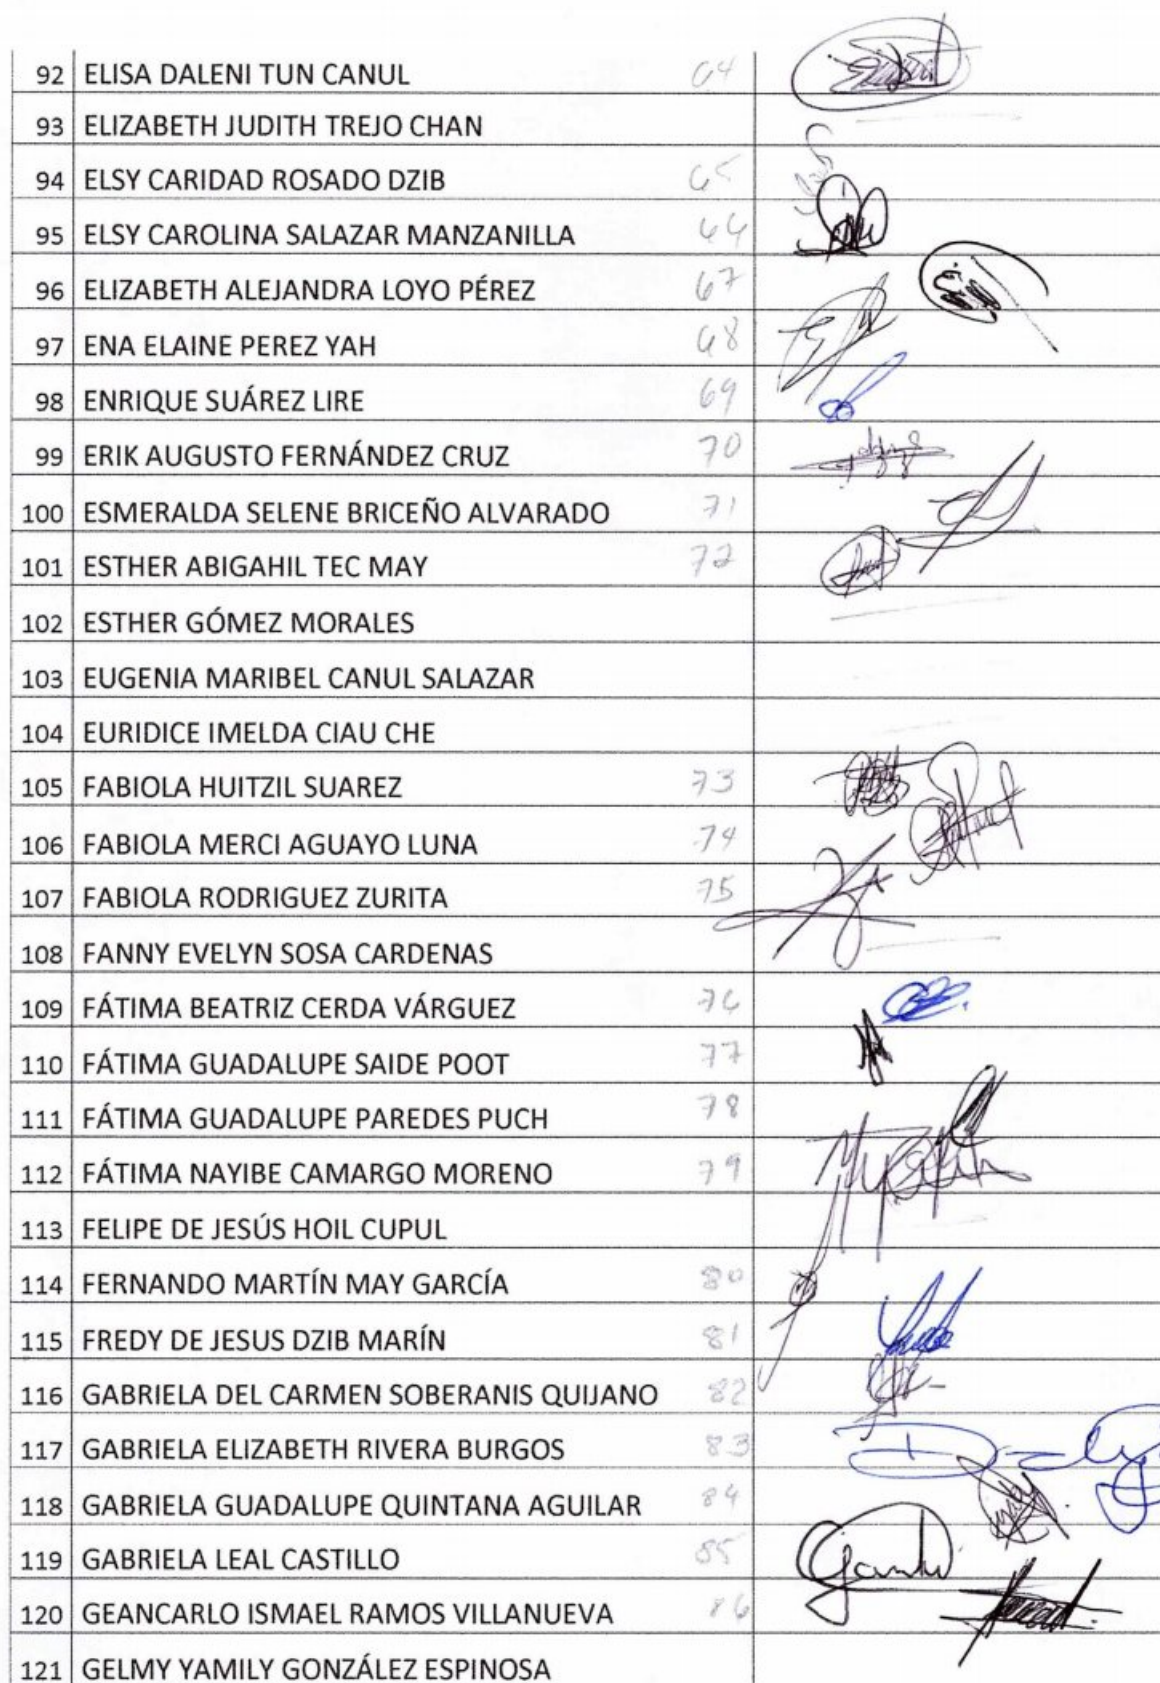 92 ELISA DALENI TUN CANUL 64
93 ELIZABETH JUDITH TREJO CHAN
94 ELSY CARIDAD ROSADO DZIB 65
95 ELSY CAROLINA SALAZAR MANZANILLA 66
96 ELIZABETH ALEJANDRA LOYO PÉREZ 67
97 ENA ELAINE PEREZ YAH 68
98 ENRIQUE SUÁREZ LIRE 69
99 ERIK AUGUSTO FERNÁNDEZ CRUZ 70
100 ESMERALDA SELENE BRICEÑO ALVARADO 71
101 ESTHER ABIGAHIL TEC MAY 72
102 ESTHER GÓMEZ MORALES
103 EUGENIA MARIBEL CANUL SALAZAR
104 EURIDICE IMELDA CIAU CHE
105 FABIOLA HUITZIL SUAREZ 73
106 FABIOLA MERCI AGUAYO LUNA 74
107 FABIOLA RODRIGUEZ ZURITA 75
108 FANNY EVELYN SOSA CARDENAS
109 FÁTIMA BEATRIZ CERDA VÁRGUEZ 76
110 FÁTIMA GUADALUPE SAIDE POOT 77
111 FÁTIMA GUADALUPE PAREDES PUCH 78
112 FÁTIMA NAYIBE CAMARGO MORENO 79
113 FELIPE DE JESÚS HOIL CUPUL
114 FERNANDO MARTÍN MAY GARCÍA 80
115 FREDY DE JESUS DZIB MARÍN 81
116 GABRIELA DEL CARMEN SOBERANIS QUIJANO 82
117 GABRIELA ELIZABETH RIVERA BURGOS 83
118 GABRIELA GUADALUPE QUINTANA AGUILAR 84
119 GABRIELA LEAL CASTILLO 85
120 GEANCARLO ISMAEL RAMOS VILLANUEVA 86
121 GELMY YAMILY GONZÁLEZ ESPINOSA